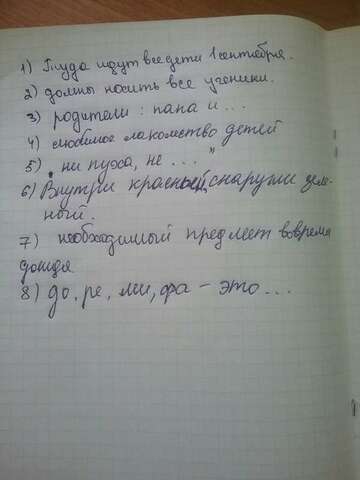 1) Туда идут все дети 1 сентября.
2) должны носить все ученики.
3) родители: папа и ...
4) любимое лакомство детей
5) „ни пуха, не ..."
6) Внутри красный, снаружи зеле-
ный.
7) необходимый предмет вовремя
дождя
8) до, ре, ми, фа - это ...